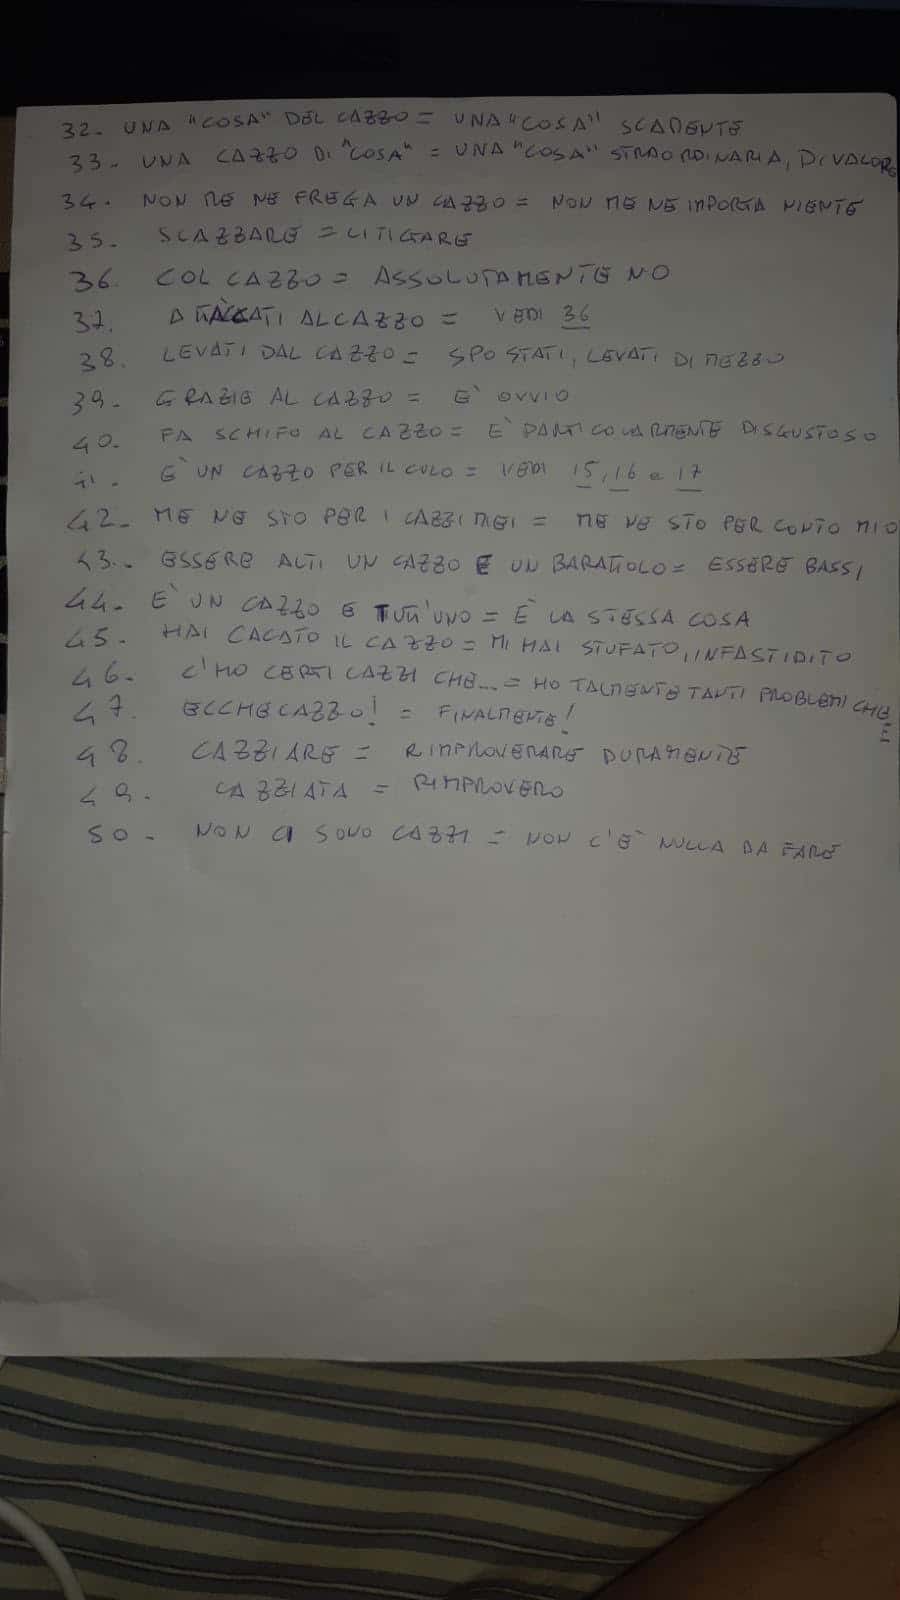 32. UNA "COSA" DEL CAZZO = UNA "COSA" SCADENTE
33. UNA CAZZO DI "COSA" = UNA "COSA" STRAORDINARIA, DI VALORE
34. NON ME NE FREGA UN CAZZO = NON ME NE IMPORTA NIENTE
35. SCAZZARE = LITIGARE
36. COL CAZZO = ASSOLUTAMENTE NO
37. ATTACCATI AL CAZZO = VEDI 36
38. LEVATI DAL CAZZO = SPOSTATI, LEVATI DI MEZZO
39. GRAZIE AL CAZZO = E' OVVIO
40. FA SCHIFO AL CAZZO = E' PARTICOLARMENTE DISGUSTOSO
41. E' UN CAZZO PER IL CULO = VEDI 15, 16 e 17
42. ME NE STO PER I CAZZI MIEI = ME NE STO PER CONTO MIO
43. ESSERE ALTI UN CAZZO E UN BARATTOLO = ESSERE BASSI
44. E' UN CAZZO E TUTT'UNO = È LA STESSA COSA
45. HAI CACATO IL CAZZO = MI HAI STUFATO, INFASTIDITO
46. C'HO CERTI CAZZI CHE... = HO TALMENTE TANTI PROBLEMI CHE...
47. ECCHECAZZO! = FINALMENTE!
48. CAZZIARE = RIMPROVERARE DURAMENTE
49. CAZZIATA = RIMPROVERO
50. NON CI SONO CAZZI = NON C'E' NULLA DA FARE